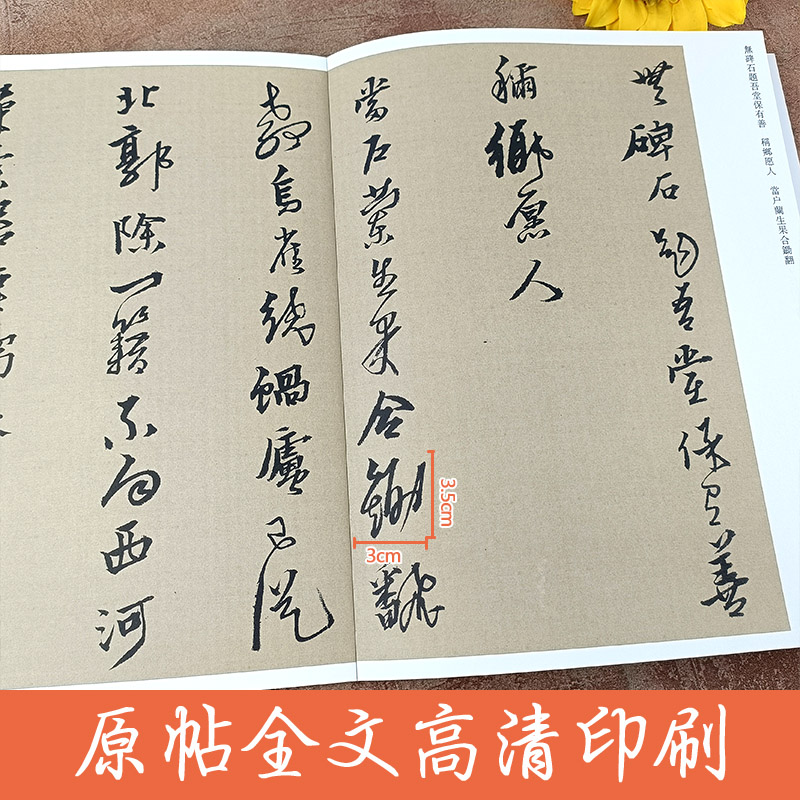 無碑石題吾堂保有善　稱鄉愿人　當户蘭生果合鋤翻
無碑石題吾堂保有善
稱鄉愿人
當户蘭生果合鋤翻
烏雀繞蝸廬已從
北郭除一籍不向西河
3.5cm
3cm
原帖全文高清印刷